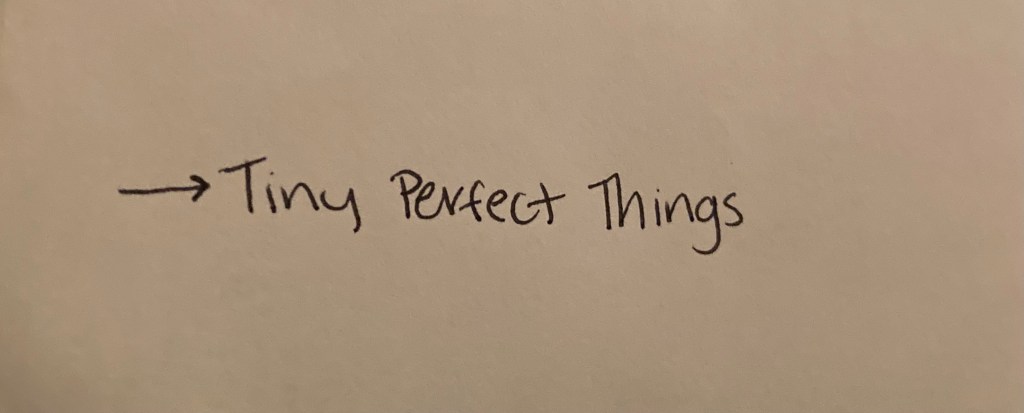 → Tiny Perfect Things